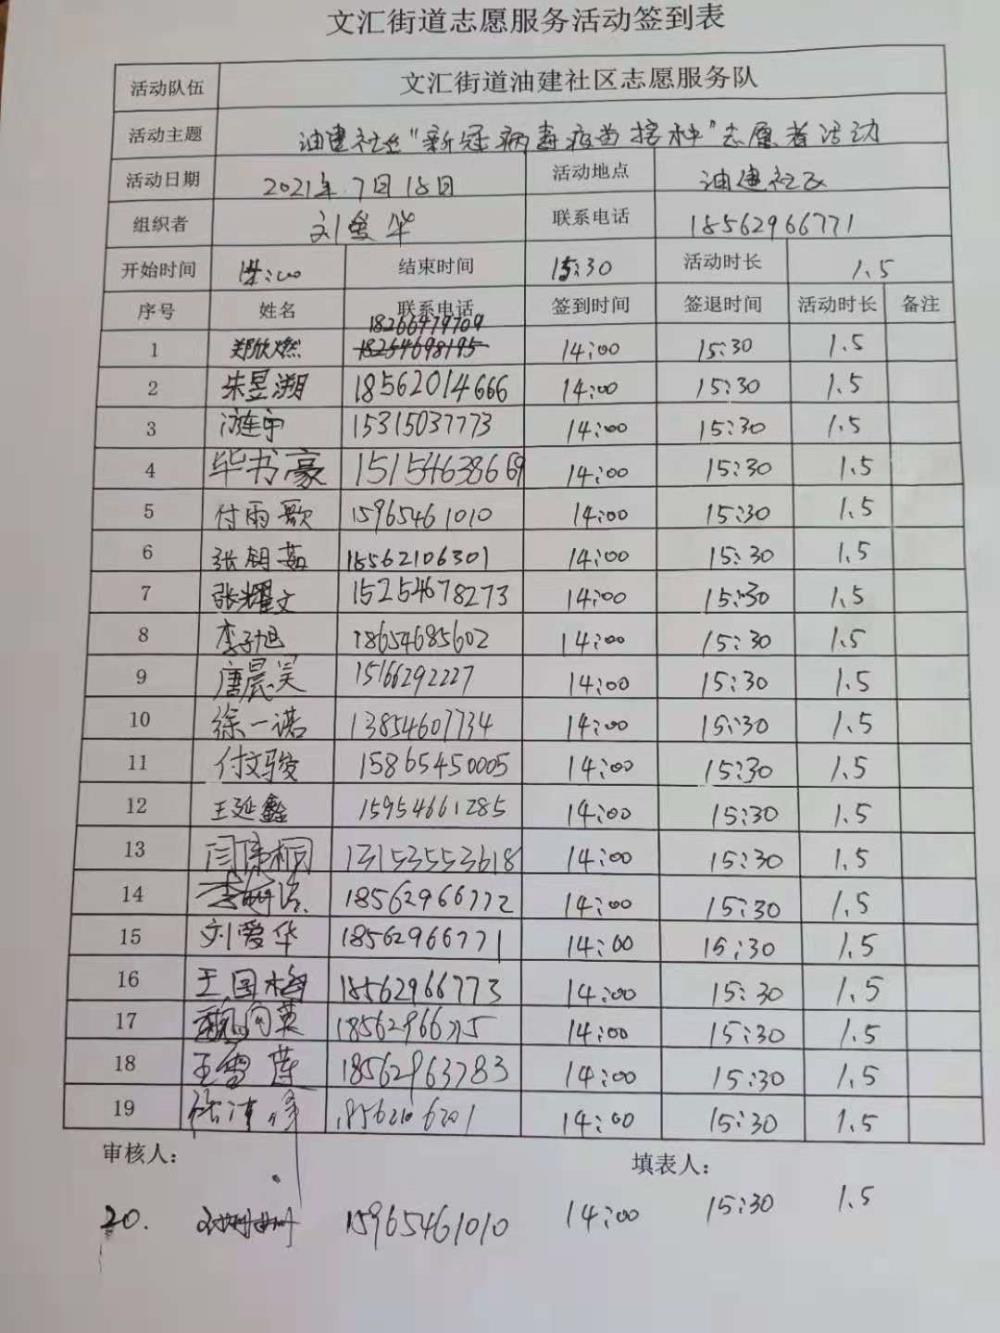 文汇街道志愿服务活动签到表
活动队伍 文汇街道油建社区志愿服务队
活动主题 油建社区"新冠病毒疫苗接种"志愿者活动
活动日期 2021年7月18日 活动地点 油建社区
组织者 刘爱华 联系电话 18562966771
开始时间 14:00 结束时间 15:30 活动时长 1.5
序号 姓名 联系电话 签到时间 签退时间 活动时长 备注
18266479709
1 郑欣燃 18254698195 14:00 15:30 1.5
2 朱昱溯 18562014666 14:00 15:30 1.5
3 15315037773 14:00 15:30 1.5
4 毕书豪 15154638669 14:00 15:30 1.5
5 付雨歌 15965461010 14:00 15:30 1.5
6 张朝茹 18562106301 14:00 15:30 1.5
7 张耀文 15254678273 14:00 15:30 1.5
8 李子旭 18654685602 14:00 15:30 1.5
9 唐晨昊 15166292227 14:00 15:30 1.5
10 徐一诺 13854607734 14:00 15:30 1.5
11 付文骏 15865450005 14:00 15:30 1.5
12 王延鑫 15954661285 14:00 15:30 1.5
13 13153553618 14:00 15:30 1.5
14 18562966772 14:00 15:30 1.5
15 刘爱华 18562966771 14:00 15:30 1.5
16 王国梅 18562966773 14:00 15:30 1.5
17 14:00 15:30 1.5
18 王雪莲 18562963783 14:00 15:30 1.5
19 14:00 15:30 1.5
审核人: 填表人:
20. 15965461010 14:00 15:30 1.5